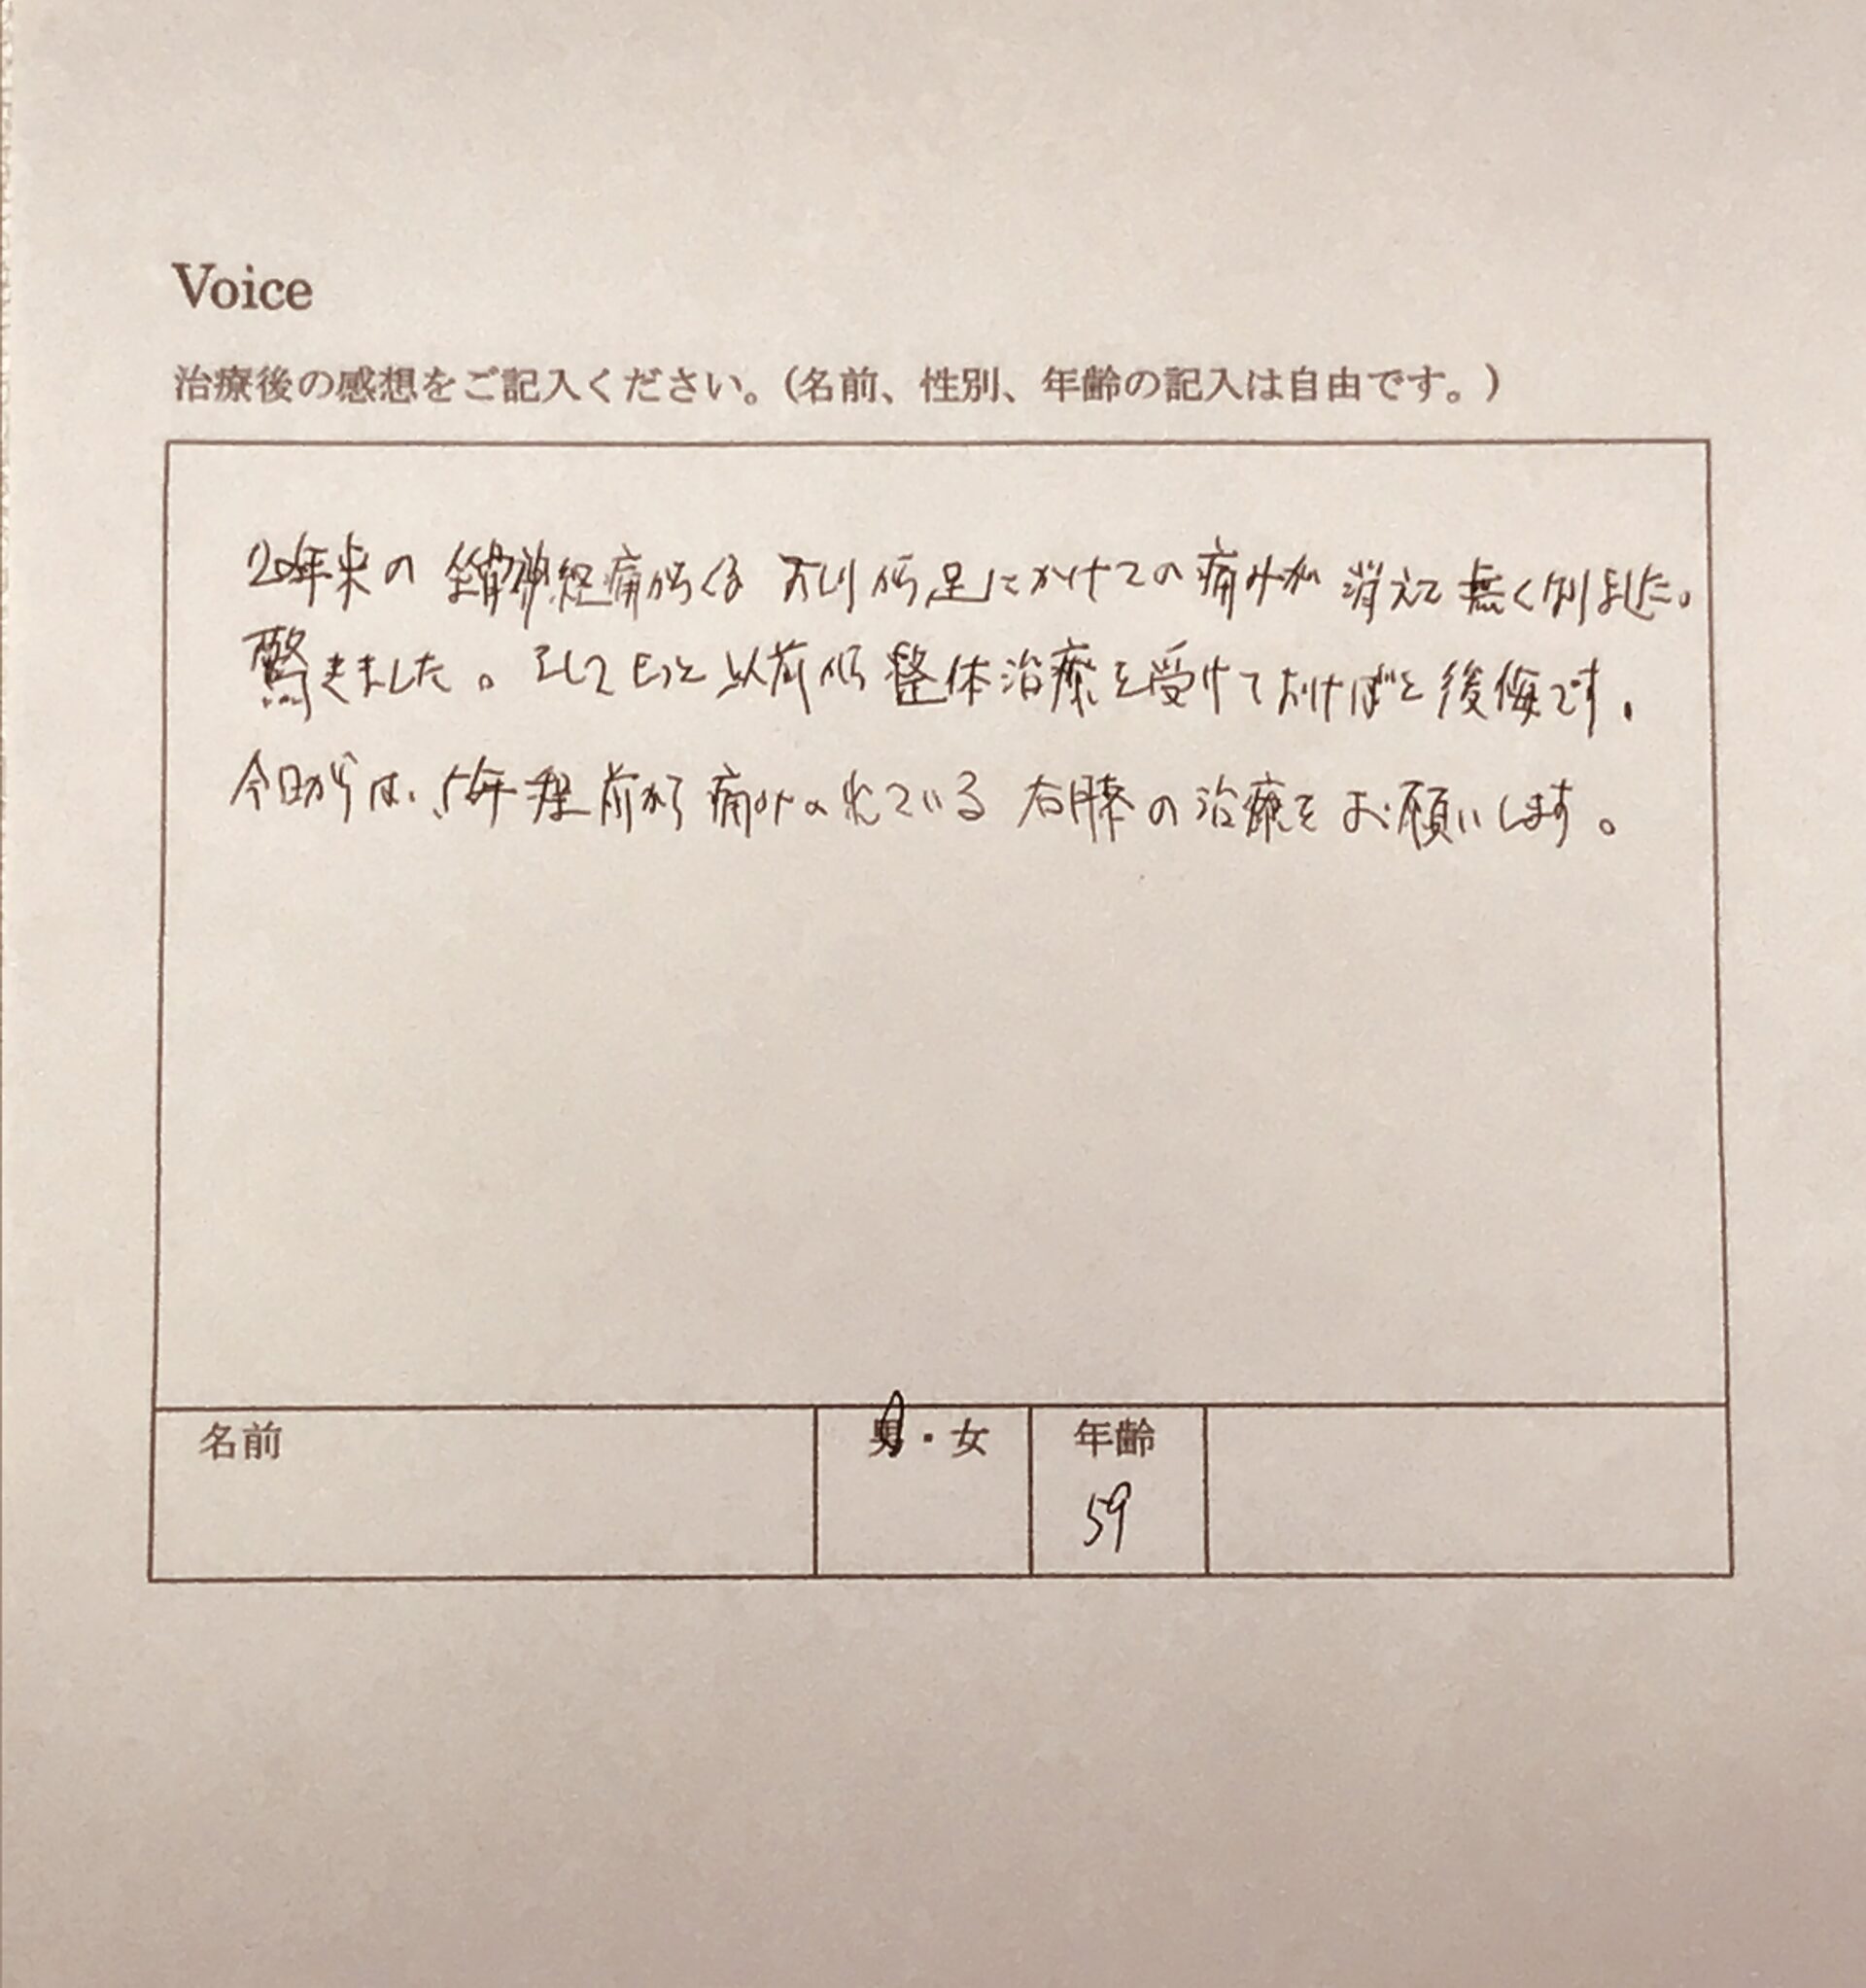 Voice
治療後の感想をご記入ください。(名前、性別、年齢の記入は自由です。)
20年来の 坐骨神経痛からくる おしりから足にかけての痛みが 消えて無くなりました。
驚きました。そしてもっと以前から整体治療を受けておけばと後悔です。
今日からは、5年程前から痛みの 出ている 右膝の治療をお願いします。
名前 男・女 年齢
59